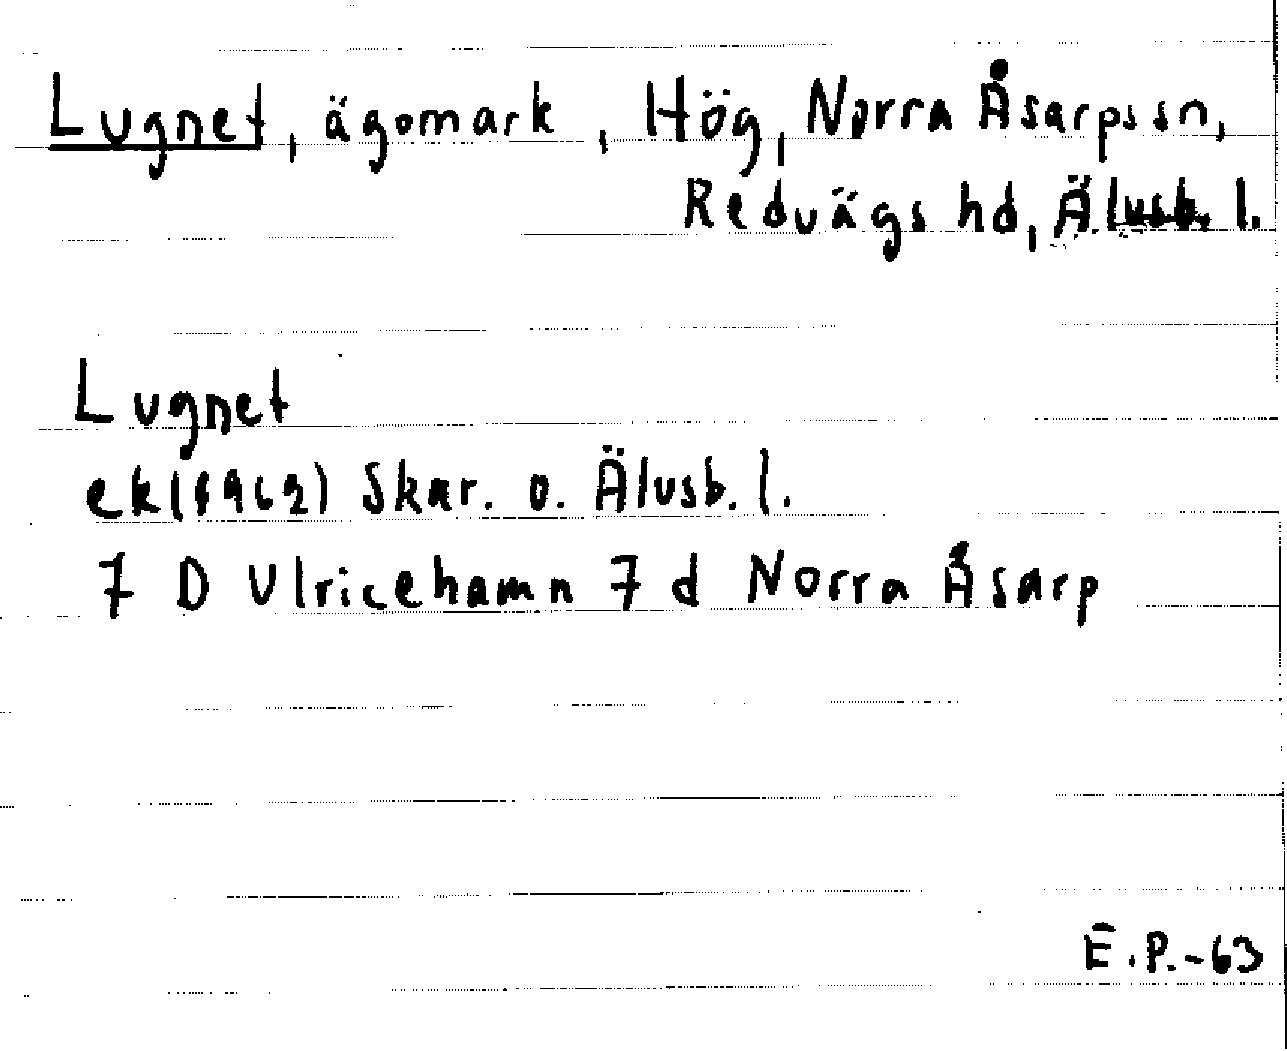 Lugnet, ägomark, Hög, Norra Åsarps sn,
Redvägs hd, Älvsb. l.
Lugnet
ek(1962) Skar. o. Älvsb. l.
7 D Ulricehamn 7 d Norra Åsarp
E.P.-63